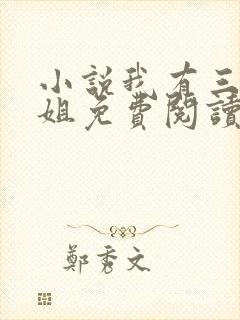 小說我有三
姐免費閱讀
鄭秀文